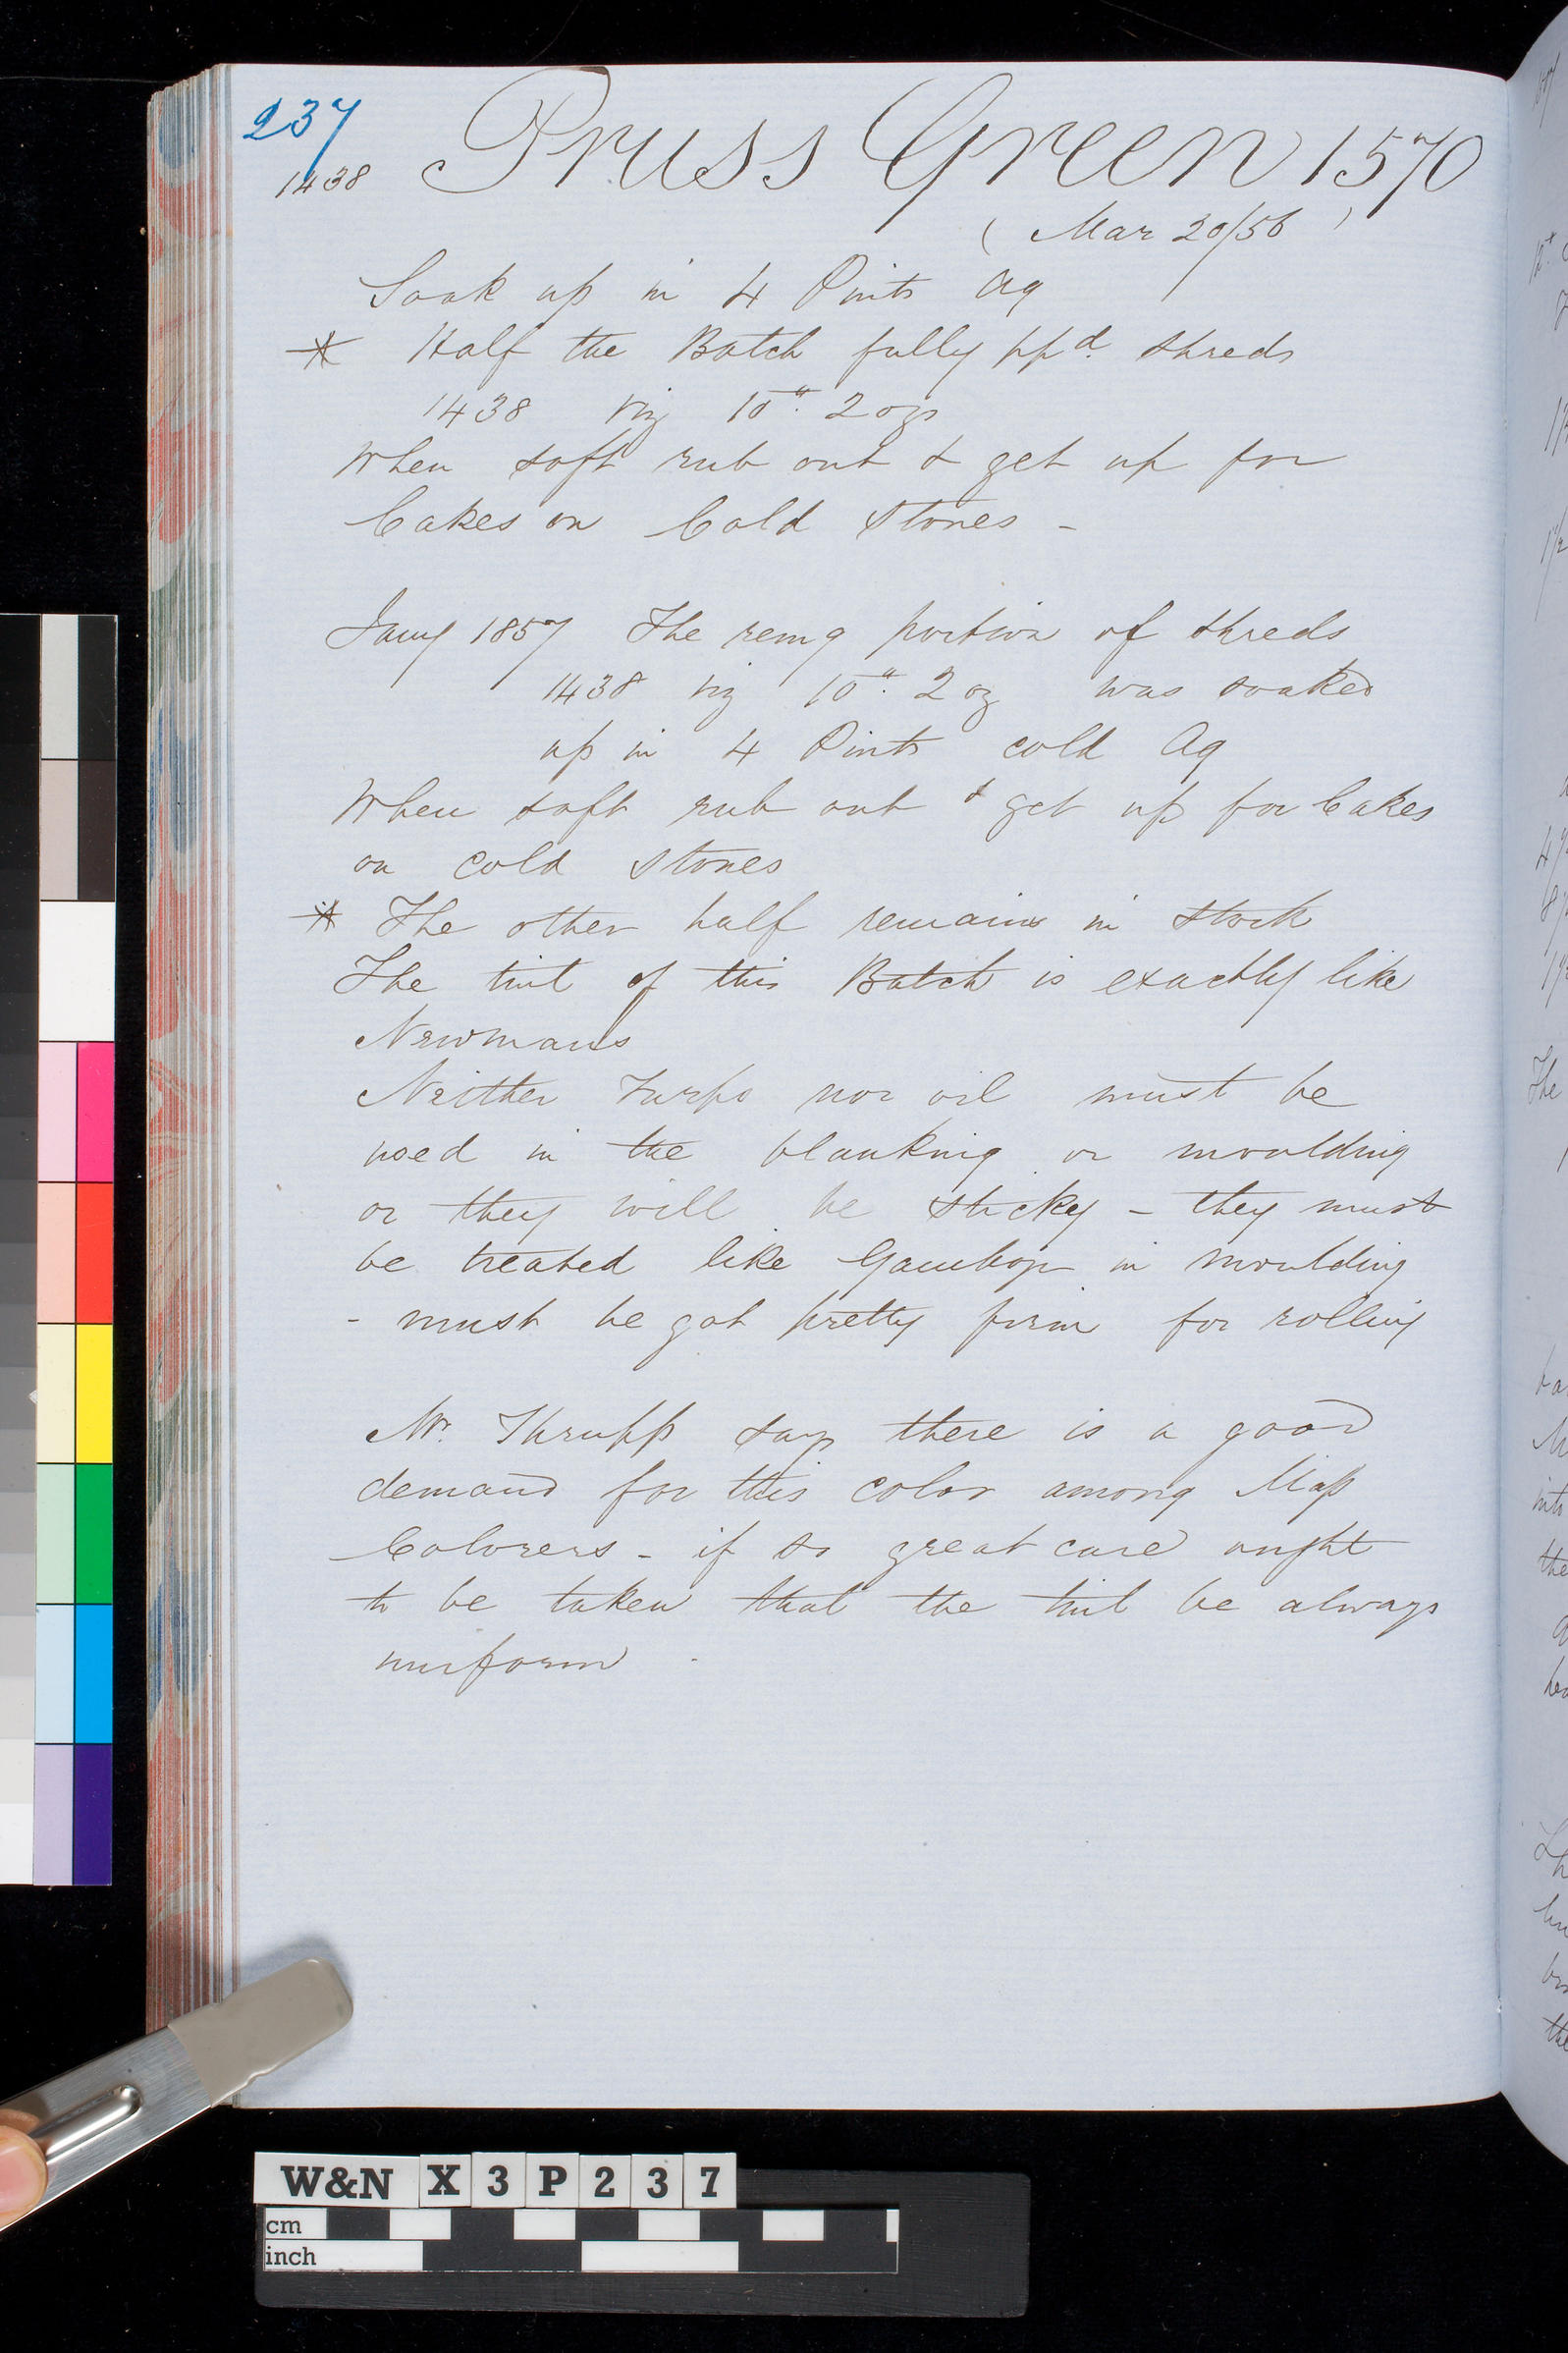 237
1438
Pruss Green 1570
( Mar 20/56 )
Soak up in 4 Pints Aq
* Half the Batch fully ppd. shreds
1438 viz 10". 2 ozs
When soft rub out & get up for
Cakes on Cold Stones -
Jany 1857 The remg portion of shreds
1438 viz 10". 2 oz was soaked
up in 4 Pints cold Aq
When soft rub out & get up for Cakes
on cold stones
* The other half remains in stock
The tint of this Batch is exactly like
Newmans
Neither Turps nor oil must be
used in the blanking or moulding
or they will be sticky - they must
be treated like Gamboge in moulding
- must be got pretty firm for rolling
Mr. Thrupp says there is a good
demand for this color among Map
Colorers - if so great care ought
to be taken that the tint be always
uniform .
W&N X 3 P 2 3 7
cm
inch